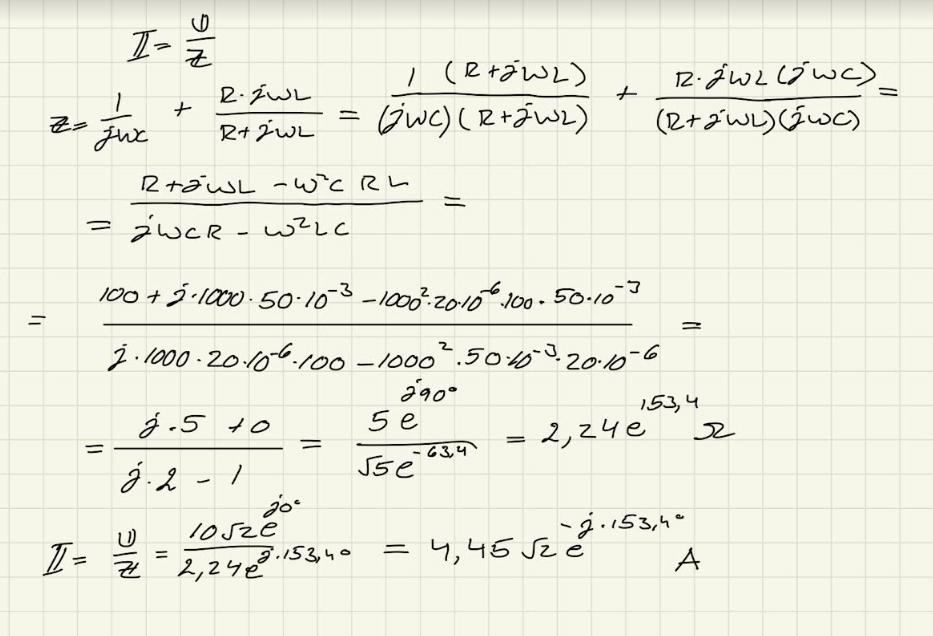 I = U/Z
Z = 1/jωC + R·jωL/R+jωL = 1 (R+jωL)/(jωC)(R+jωL) + R·jωL(jωC)/(R+jωL)(jωC) =
= R+jωL −ω²C RL/jωCR − ω²LC =
= 100 + j·1000·50·10⁻³ −1000²·20·10⁻⁶·100·50·10⁻³/j·1000·20·10⁻⁶·100 −1000²·50·10⁻³·20·10⁻⁶ =
= j·5 +0/j·2 − 1 = 5e^j90°/√5e^-63,4 = 2,24e^153,4 Ω
I = U/Z = 10√2e^j0°/2,24e^j·153,4° = 4,45√2e^-j·153,4° A